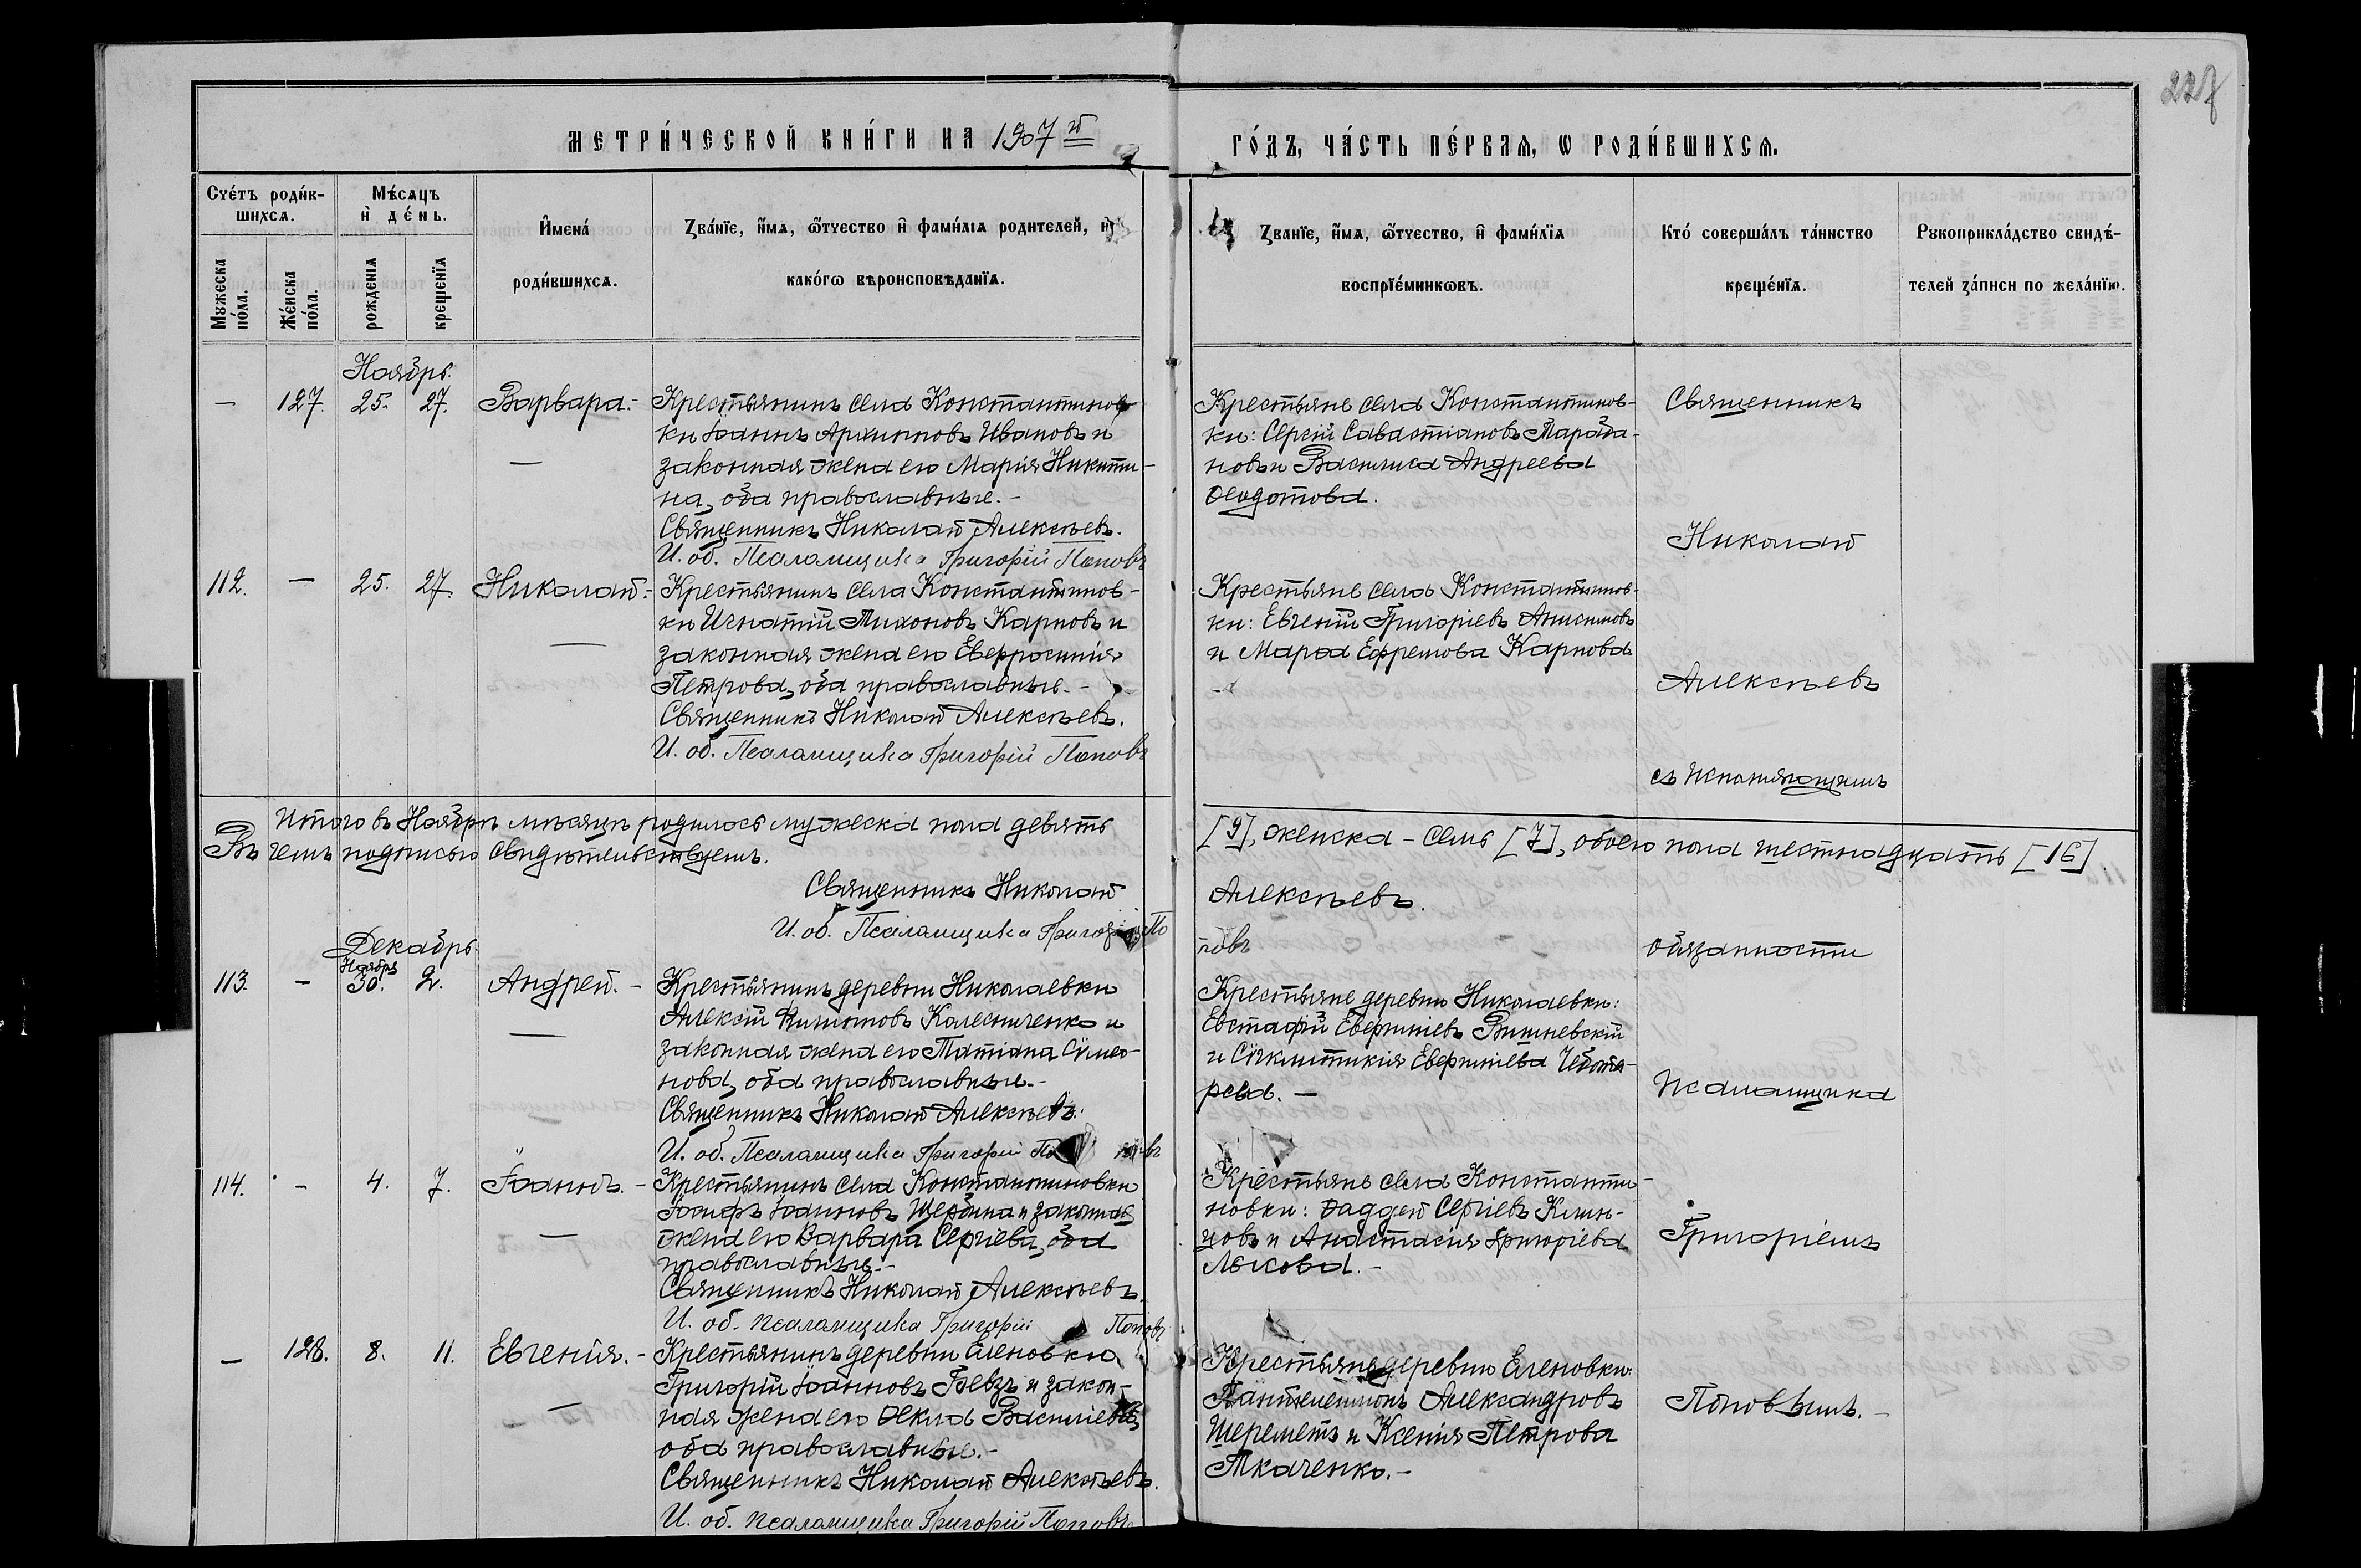 227
МЕТРИ́ЧЕСКОЙ КНИ́ГИ НА 1907 й
ГО́ДЪ, ЧА́СТЬ ПЕ́РВАѦ, Ѡ РОДИ́ВШИХСѦ.
Сче́тъ роди́в-
шихсѧ.
Мѣ́сѧцъ
и҆ де́нь.
И҆мена́
роди́вшихсѧ.
Зва́нїе, и҆́мѧ, ѻ҆́тчество и҆ фами́лїѧ родителей, и҆
како́гѡ вѣроисповѣданїѧ.
Зва́нїе, и҆́мѧ, ѻ҆́тчество, и҆ фами́лїѧ
воспрїе́мниковъ.
Кто́ соверша́лъ та́инство
креще́нїѧ.
Рꙋкоприкла́дство свидѣ́-
телей за́писи по жела́нїю.
Мꙋжеска
по́ла.
Же́нска
по́ла.
рожденїѧ
крещенїѧ
Ноябрь.
— 127. 25. 27. Варвара. —
Крестьянинъ села Константинов-
ки Іоаннъ Архиповъ Ивановъ и
законная жена его Марія Никити-
на, оба православные. —
Священникъ Николай Алексѣевъ.
И. об. Псаломщика Григорій Поповъ
Крестьяне села Константинов-
ки: Сергій Савастіановъ
новъ и Василиса Андреева
Ѳеодотова.
Священникъ
Николай
112. — 25. 27. Николай. —
Крестьянинъ села Константинов-
ки Игнатій Тихоновъ Карповъ и
законная жена его Евфросинія
Петрова, оба православные. —
Священникъ Николай Алексѣевъ.
И. об. Псаломщика Григорій Поповъ
Крестьяне села Константинов-
ки: Евгеній Григоріевъ Анисимовъ
и Марѳа Ефремова Карпова
Алексѣевъ
съ исполняющимъ
Итого въ Ноябрѣ мѣсяцѣ родилось мужеска пола девять
[9], женска – семь [7], обоего пола шестнадцать [16].
Въ чемъ подписью свидѣтельствуемъ.
Священникъ Николай
Алексѣевъ.
И. об. Псаломщика Григорій По
повъ
обязанности
Декабрь.
Ноября
113. — 30. 2. Андрей. —
Крестьянинъ деревни Николаевки
Алексій Колесниченко и
законная жена его Татіана Симео-
нова, оба православные. —
Священникъ Николай Алексѣевъ.
И. об. Псаломщика Григорій Поповъ
Крестьяне деревни Николаевки:
Евстафій Вишневскій
и Синклитикія Чебота-
рева. —
псаломщика
114. — 4. 7. Іоаннъ. —
Крестьянинъ села Константиновки
Іосифъ Іоанновъ Щербина и законная
жена его Варвара Сергіева, оба
православные. —
Священникъ Николай Алексѣевъ.
И. об. псаломщика Григорій Поповъ
Крестьяне села Константи-
новки: Ѳаддей Сергіевъ Клим-
цовъ и Анастасія Григоріева
Лескова. —
Григоріемъ
— 128. 8. 11. Евгенія. —
Крестьянинъ деревни Еленовки
Григорій Іоанновъ Бевзъ и закон-
ная жена его Ѳекла Васильева,
оба православные. —
Священникъ Николай Алексѣевъ.
И. об. псаломщика Григорій Поповъ
Крестьяне деревни Еленовки:
Пантелеимонъ Александровъ
Шереметъ и Ксенія Петрова
Ткаченко. —
Поповымъ. —